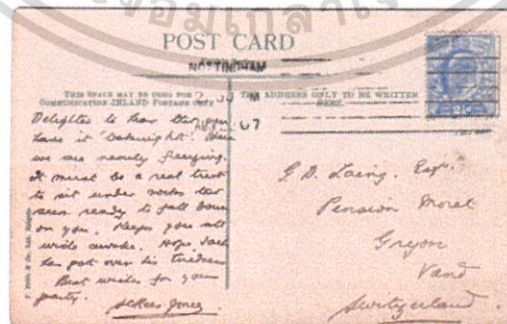 จอมเกล้า
POST CARD
NOTTINGHAM
THIS SPACE MAY BE USED FOR
COMMUNICATION INLAND POSTAGE ONLY
THE ADDRESS ONLY TO BE WRITTEN
HERE.
Delighted to hear that you
have it
we are nearly freezing.
It must be a real treat
to sit under rocks that
seem ready to fall down
on you. Keeps you all
wide awake. Hope Jack
has got over his tiredness
Best wishes for your
party.
G. D. Laing. Esqr.
Pension Moret
Gryon
Vaud
Switzerland.